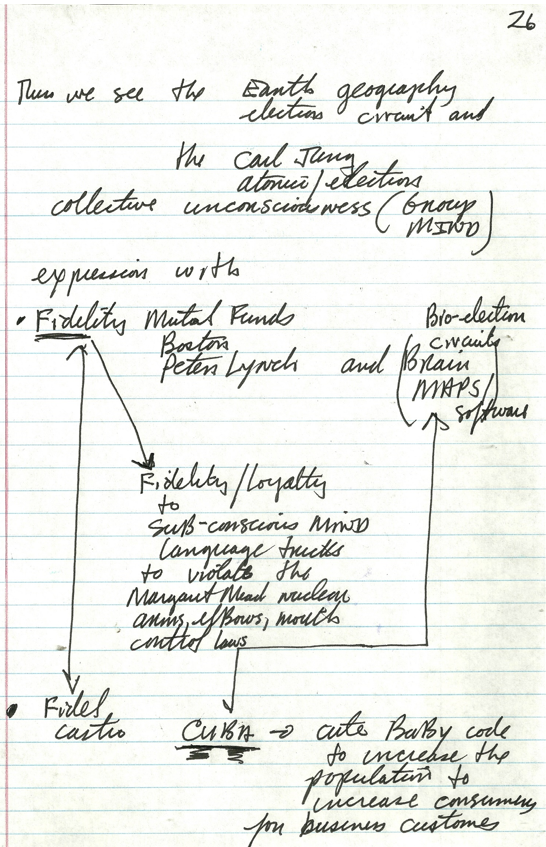 26
Thus we see the Earth geography
electron circuit and
the Carl Jung
atomic/electron
collective unconsciousness (Group
MIND)
expression with
• Fidelity Mutal Funds
Boston
Peter Lynch and
Bio-electron
circuits
(Brain
MAPS/
software)
Fidelity/Loyalty
to
SUB-conscious MIND
Language tricks
to violate the
Margaret Mead nuclear
arms, elBows, mouth
control laws
• Fidel
castro
CUBA → cute BaBy code
to increase the
population to
increase consumers
for business customers